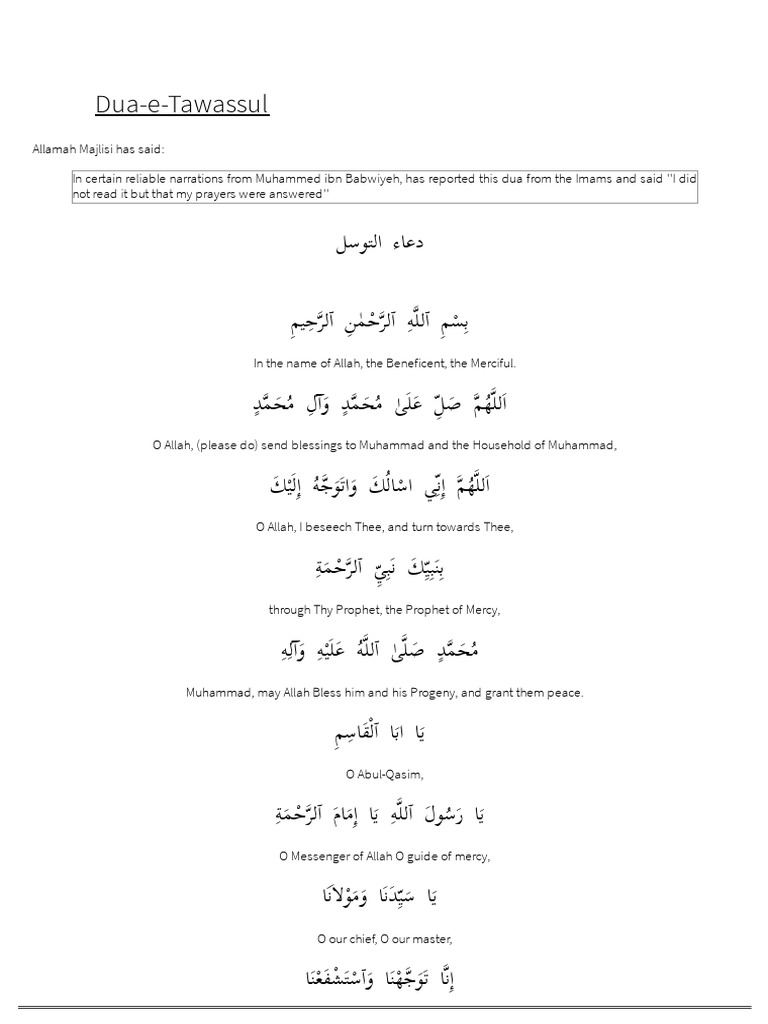 Dua-e-Tawassul
Allamah Majlisi has said:
In certain reliable narrations from Muhammed ibn Babwiyeh, has reported this dua from the Imams and said "I did
not read it but that my prayers were answered"
دعاء التوسل
بِسْمِ ٱللَّهِ ٱلرَّحْمٰنِ ٱلرَّحِيمِ
In the name of Allah, the Beneficent, the Merciful.
اَللَّهُمَّ صَلِّ عَلَىٰ مُحَمَّدٍ وَآلِ مُحَمَّدٍ
O Allah, (please do) send blessings to Muhammad and the Household of Muhammad,
اَللَّهُمَّ إِنِّي اسْالُكَ وَاتَوَجَّهُ إِلَيْكَ
O Allah, I beseech Thee, and turn towards Thee,
بِنَبِيِّكَ نَبِيِّ ٱلرَّحْمَةِ
through Thy Prophet, the Prophet of Mercy,
مُحَمَّدٍ صَلَّىٰ ٱللَّهُ عَلَيْهِ وَآلِهِ
Muhammad, may Allah Bless him and his Progeny, and grant them peace.
يَا ابَا ٱلْقَاسِمِ
O Abul-Qasim,
يَا رَسُولَ ٱللَّهِ يَا إِمَامَ ٱلرَّحْمَةِ
O Messenger of Allah O guide of mercy,
يَا سَيِّدَنَا وَمَوْلاَنَا
O our chief, O our master,
إِنَّا تَوَجَّهْنَا وَٱسْتَشْفَعْنَا